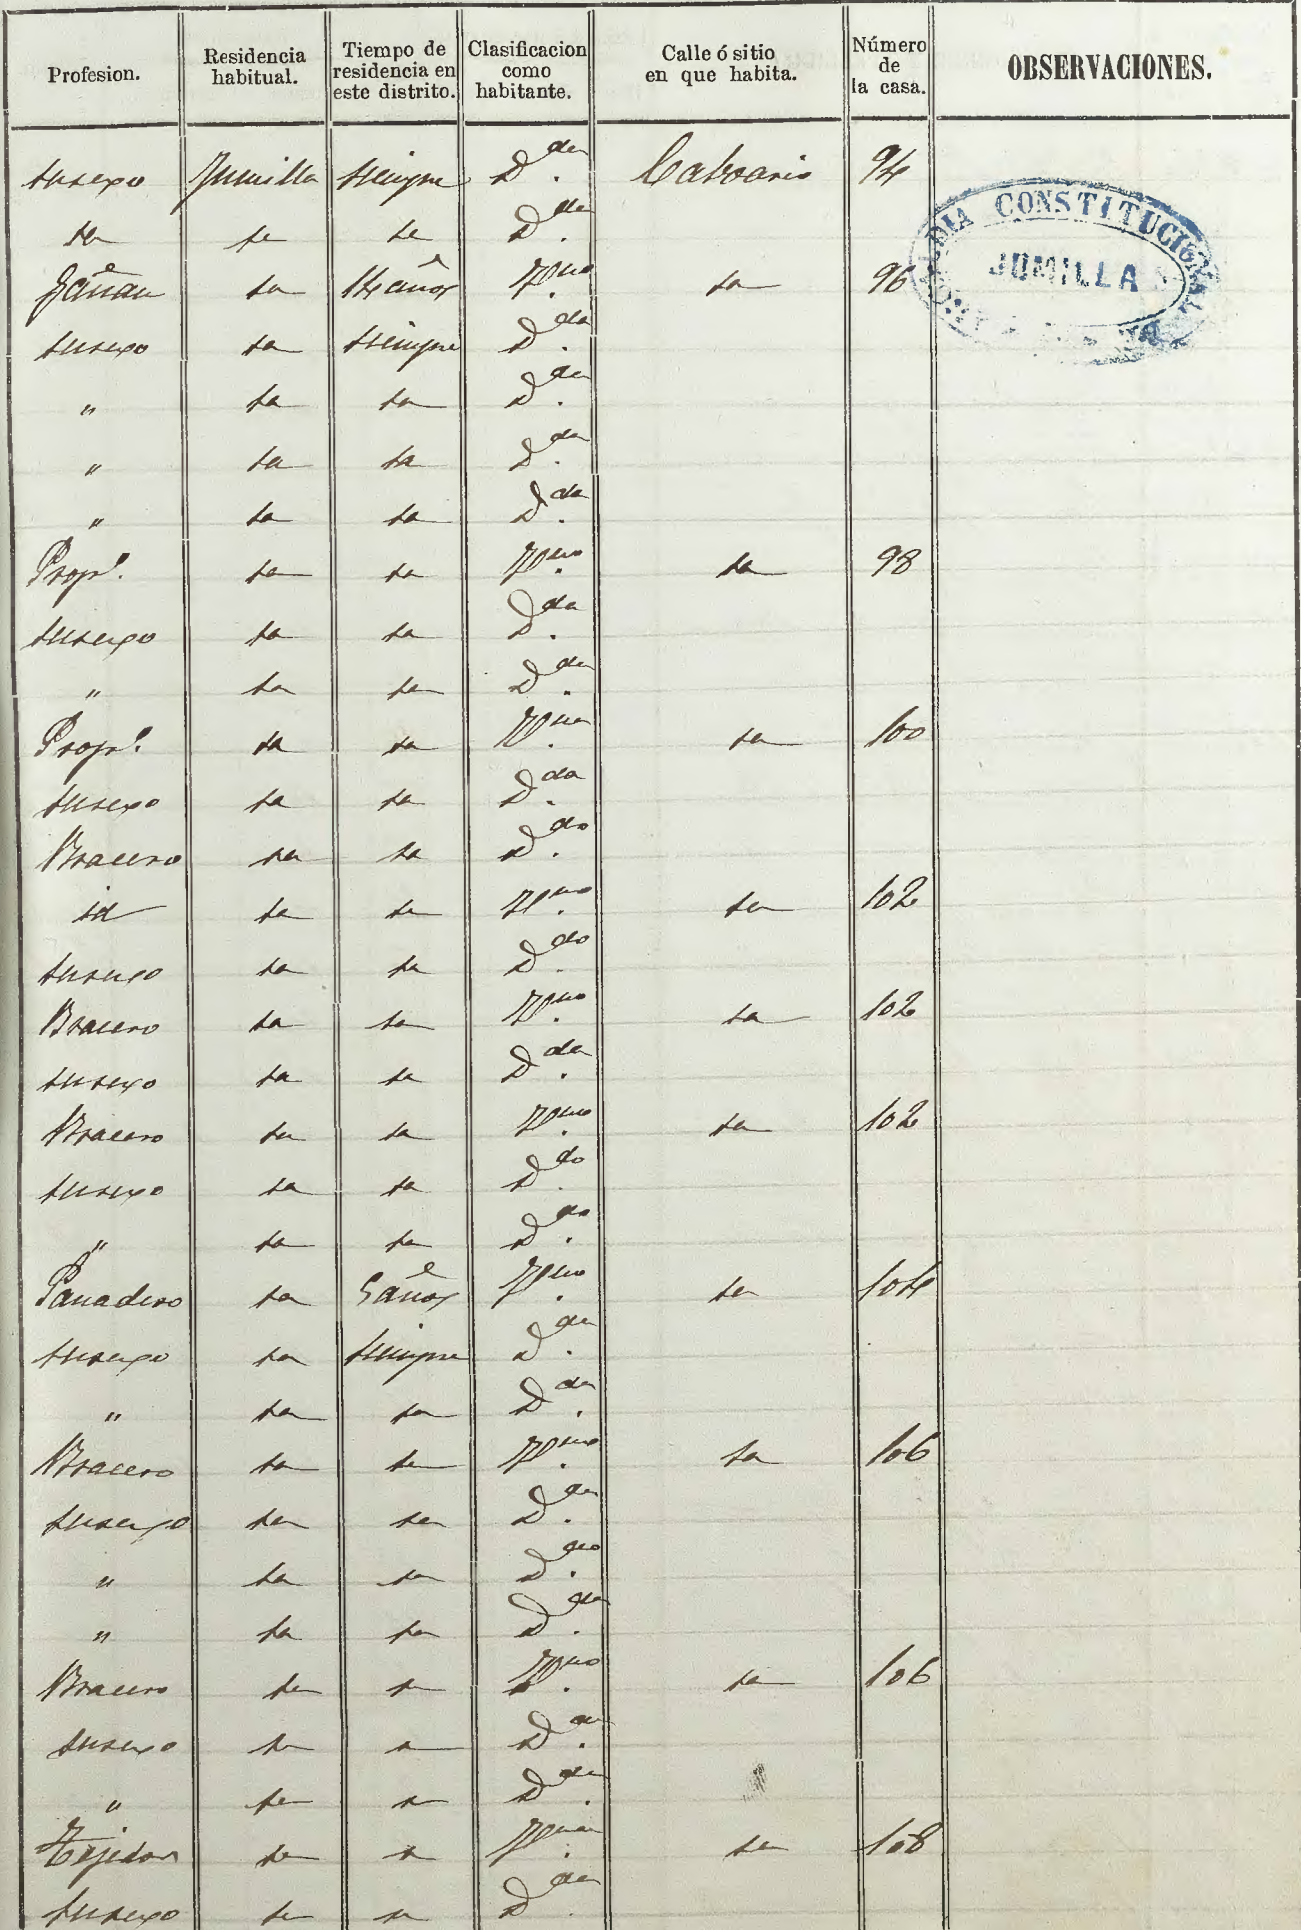 Profesion. Residencia habitual. Tiempo de residencia en este distrito. Clasificacion como habitante. Calle ó sitio en que habita. Número de la casa. OBSERVACIONES.
su sexo Jumilla siempre D.da Calvario 94
id id id D.da
Gañan id 14 años V.no id 96
su sexo id siempre D.da
" id id D.da
" id id D.da
" id id D.da
Prop.o id id V.no id 98
su sexo id id D.da
" id id D.da
Prop.o id id V.no id 100
su sexo id id D.da
Bracero id id D.do
id id id V.no id 102
su sexo id id D.do
Bracero id id V.no id 102
su sexo id id D.da
Bracero id id V.no id 102
su sexo id id D.do
" id id D.do
Panadero id 5 años V.no id 104
su sexo id siempre D.da
" id id D.da
Bracero id id V.no id 106
su sexo id id D.da
" id id D.do
" id id D.da
Bracero id id V.no id 106
su sexo id id D.da
" id id D.da
Tejedor id id V.no id 108
su sexo id id D.da
CONSTITUCIONAL
JUMILLA